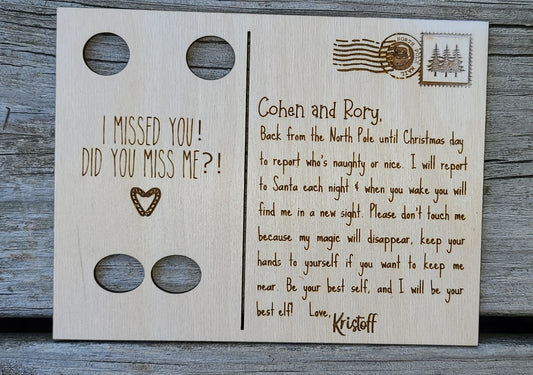 I MISSED YOU!
DID YOU MISS ME?!
Cohen and Rory,
Back from the North Pole until Christmas day
to report who's naughty or nice. I will report
to Santa each night & when you wake you will
find me in a new sight. Please don't touch me
because my magic will disappear, keep your
hands to yourself if you want to keep me
near. Be your best self, and I will be your
best elf! Love, Kristoff